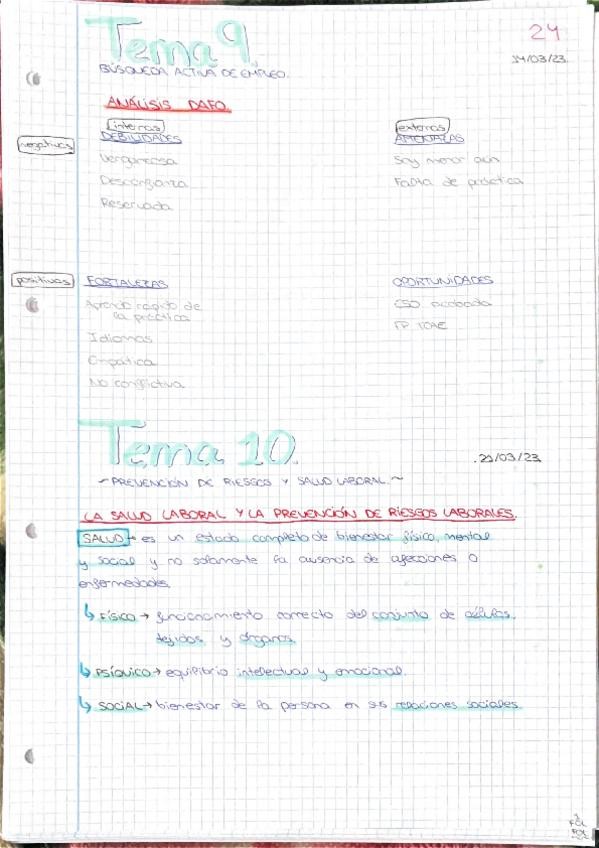 24
Tema 9.
14/03/23
BÚSQUEDA ACTIVA DE EMPLEO.
ANÁLISIS DAFO.
internas
externas
negativas
DEBILIDADES
AMENAZAS
Vergonzosa
Soy menor aún
Desconfianza
Falta de práctica
Reservada
positivas
FORTALEZAS
OPORTUNIDADES
Aprendo rápido de
la práctica
ESO acabada
Idiomas
FP TCAE
Empática
No conflictiva
Tema 10.
21/03/23
~ PREVENCIÓN DE RIESGOS Y SALUD LABORAL ~
LA SALUD LABORAL Y LA PREVENCIÓN DE RIESGOS LABORALES.
SALUD → es un estado completo de bienestar físico, mental
y social y no solamente la ausencia de afecciones o
enfermedades
↳ FÍSICO → funcionamiento correcto del conjunto de células,
tejidos y órganos.
↳ PSÍQUICO → equilibrio intelectual y emocional.
↳ SOCIAL → bienestar de la persona en sus relaciones sociales.